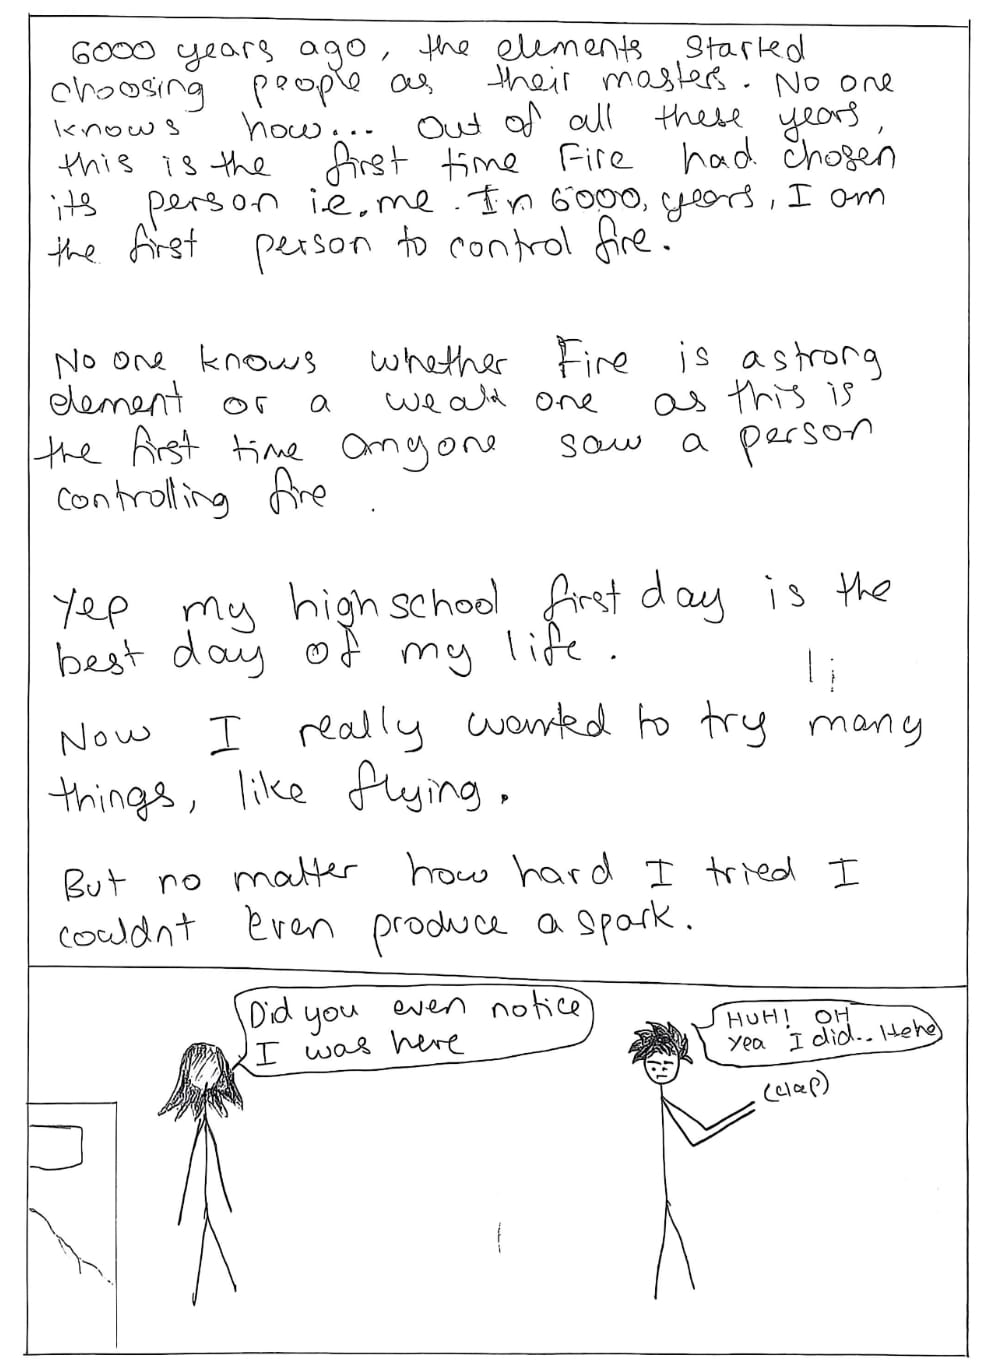 6000 years ago, the elements started
choosing people as their masters. No one
knows how... Out of all these years,
this is the first time Fire had chosen
its person i.e. me. In 6000, years, I am
the first person to control fire.
No one knows whether Fire is a strong
element or a weak one as this is
the first time anyone saw a person
controlling fire.
Yep my high school first day is the
best day of my life.
Now I really wanted to try many
things, like flying.
But no matter how hard I tried I
couldnt even produce a spark.
Did you even notice
I was here
HUH! OH
yea I did.. Hehe
(clap)